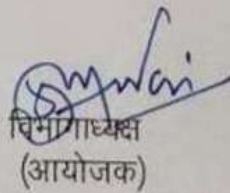 विभागाध्यक्ष
(आयोजक)